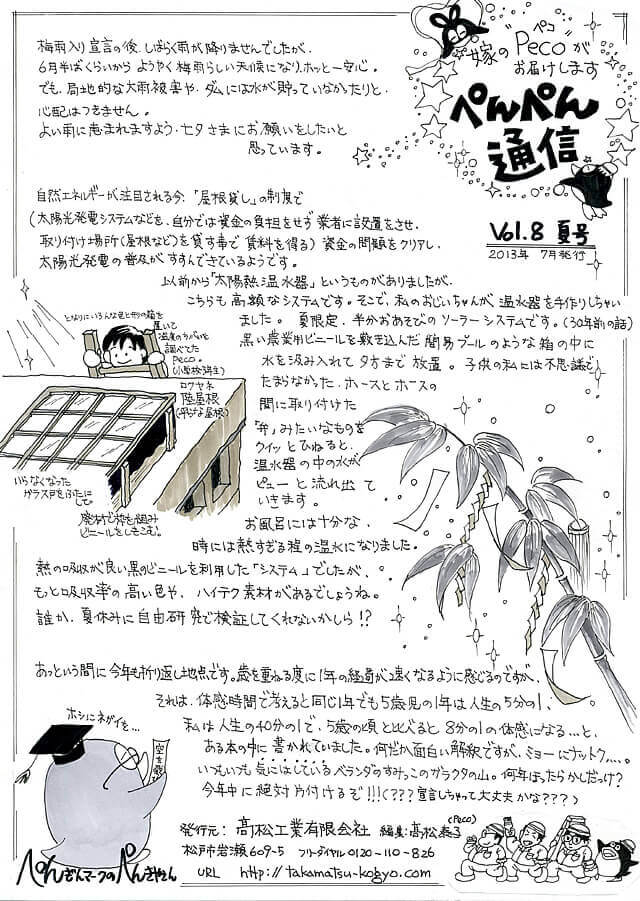 梅雨入り宣言の後、しばらく雨が降りませんでしたが、
6月半ばくらいから ようやく梅雨らしい天候になり、ホッと一安心。
でも、局地的な大雨被害や、ダムには水が貯っていなかたりと、
心配はつきません。
よい雨に恵まれますよう、七夕さまにお願いをしたいと
思っています。
嫁の"Peco"が
ペコ
お届けします
ぺんぺん
通信
Vol.8 夏号
2013年 7月発行
自然エネルギーが注目される今、「屋根貸し」の制度で
(太陽光発電システムなどを、自分では資金の負担をせず 業者に設置をさせ、
取り付け場所(屋根など)を貸す事で 賃料を得る) 資金の問題をクリアし、
太陽光発電の普及が すすんできているようです。
以前から「太陽熱温水器」というものがありましたが、
こちらも高額なシステムです。そこで、私のおじいちゃんが 温水器を手作りしちゃい
ました。 夏限定、半分おあそびの ソーラーシステムです。(30年前の話)
黒い農業用ビニールを敷き込んだ 簡易プールのような箱の中に
水を汲み入れて夕方まで放置。 子供の私には不思議で
たまらなかった。ホースとホースの
間に取り付けた
「弁」みたいなものを
クイッとひねると、
温水器の中の水が
ピューと流れ出て
いきます。
お風呂には十分な、
時には熱すぎる程の温水になりました。
となりにいろんな色と形の箱を
置いて
温度のちがいを
調べてた
Peco。
ロクヤネ
陸屋根
(平らな屋根)
いらなくなった
ガラス戸をふたにして
廃材で枠を組み
ビニールをしきこむ。
熱の吸収が良い黒のビニールを利用した「システム」でしたが、
もっと吸収率の高い色や、ハイテク素材があるでしょうね。
誰か、夏休みに自由研究で検証してくれないかしら!?
あっという間に今年も折り返し地点です。歳を重ねる度に1年の経過が速くなるように感じるのですが、
それは、体感時間で考えると同じ1年でも5歳児の1年は人生の5分の1、
私は人生の40分の1で、5歳の頃と比べると 8分の1の体感になる…と、
ある本の中に書かれていました。何だか面白い解釈ですが、ミョーにナットク....。
いつもいつも気にはしているベランダのすみっこのガラクタの山。何年ほったらかしだっけ?
今年中に絶対片付けるぞ!!!(???宣言しちゃって大丈夫かな???)
ホシにネガイを…
発行元: 高松工業有限会社 編集:高松
(Peco)
松戸市岩瀬609-5 フリーダイヤル 0120-110-826
URL http://takamatsu-kogyo.com
ぺんぎんマークのぺんきやさん